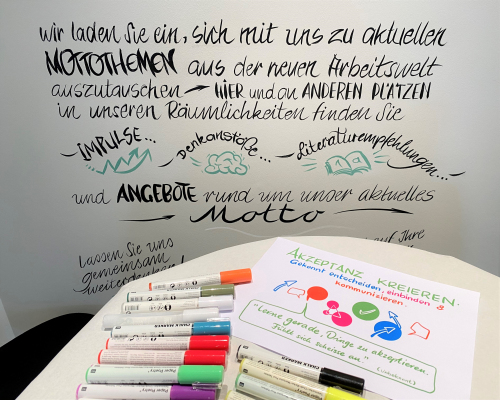 wir laden Sie ein, sich mit uns zu aktuellen
MOTTOTHEMEN aus der neuen Arbeitswelt
auszutauschen → HIER und an ANDEREN PLÄTZEN
in unseren Räumlichkeiten finden Sie
IMPULSE... Denkanstöße... Literaturempfehlungen...
und ANGEBOTE rund um unser aktuelles
Motto
Lassen Sie uns
gemeinsam
weiterdenken!
auf Ihre
AKZEPTANZ KREIEREN.
Gekonnt entscheiden, einbinden &
kommunizieren
"Lerne gerade, Dinge zu akzeptieren.
Fühlt sich scheisse an."
CHALK MARKER
CHALK MARKER